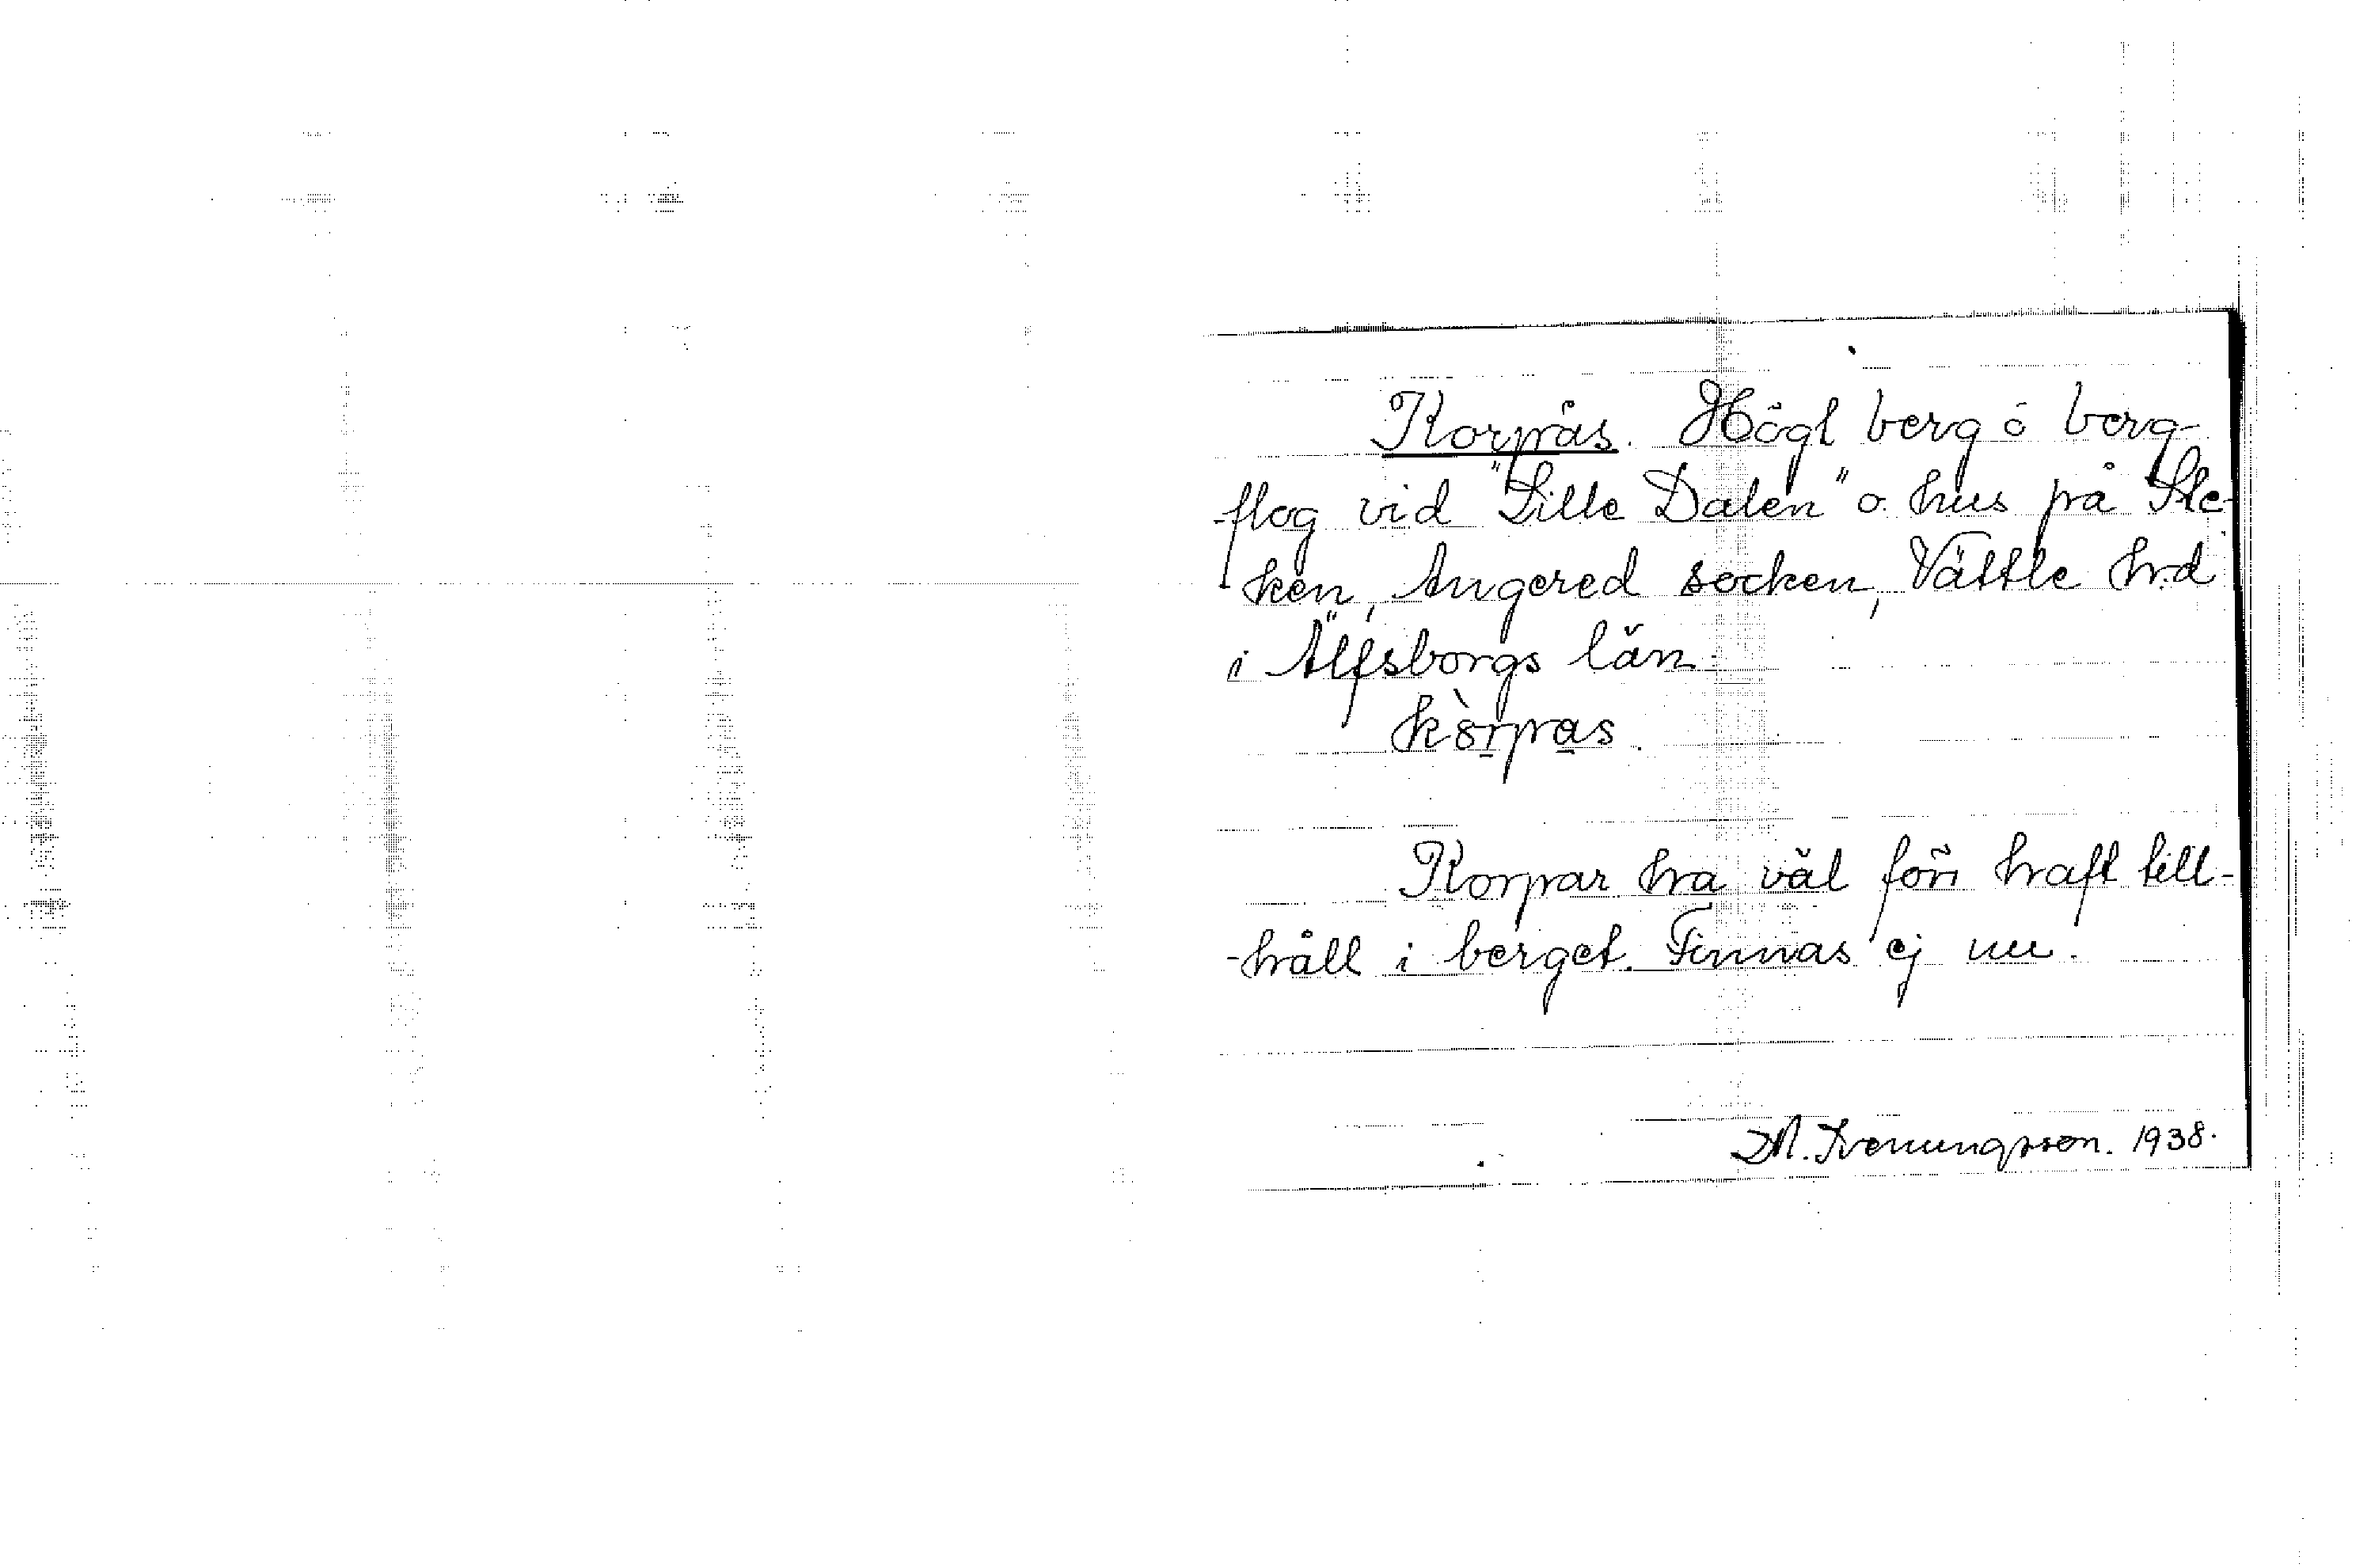 Korpås. Högl berg ó berg-
-flog vid "Lille Dalen" o. hus på Ste-
ken, Angered socken, Vättle hrd
i Älfsborgs län.
kòrpas.
Korpar ha väl förr haft till-
-håll i berget. Finnas ej nu.
M. Svenungsson. 1938.